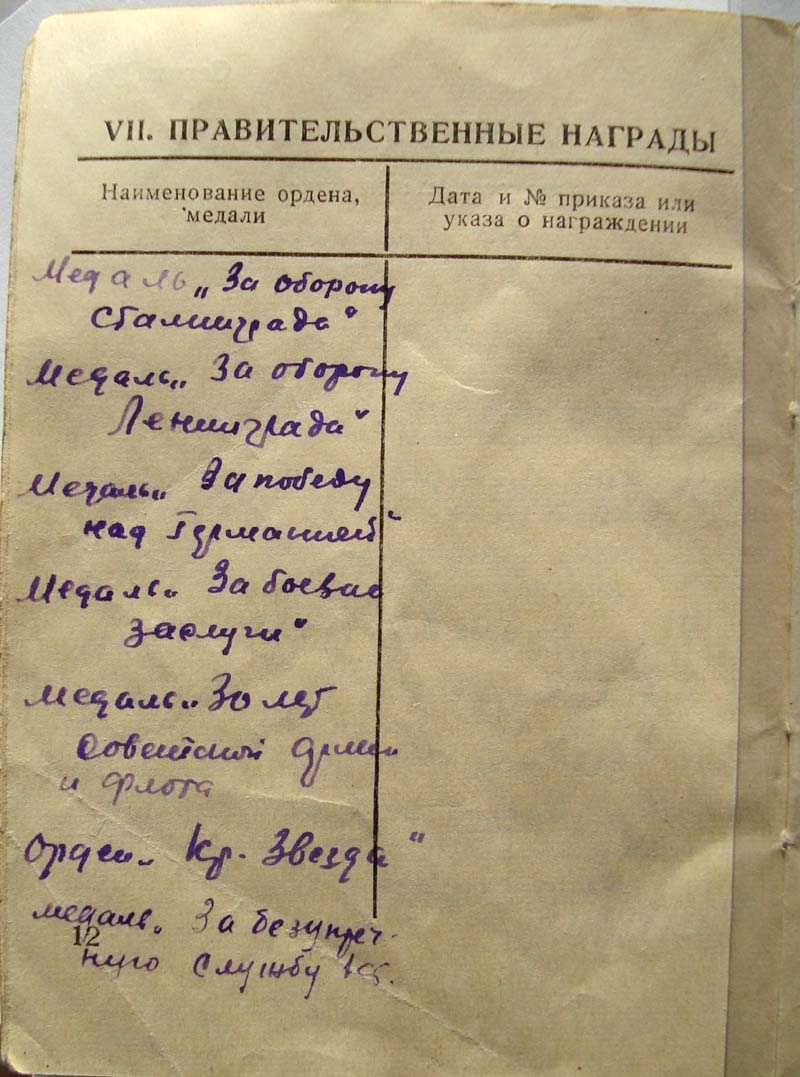 VII. ПРАВИТЕЛЬСТВЕННЫЕ НАГРАДЫ
Наименование ордена,
медали
Дата и № приказа или
указа о награждении
Медаль „За оборону
Сталинграда"
Медаль „За оборону
Ленинграда"
Медаль „За победу
над Германией"
Медаль „За боевые
заслуги"
Медаль „30 лет
Советской Армии
и Флота
Орден „Кр. Звезда"
медаль „За безупреч-
12
ную службу